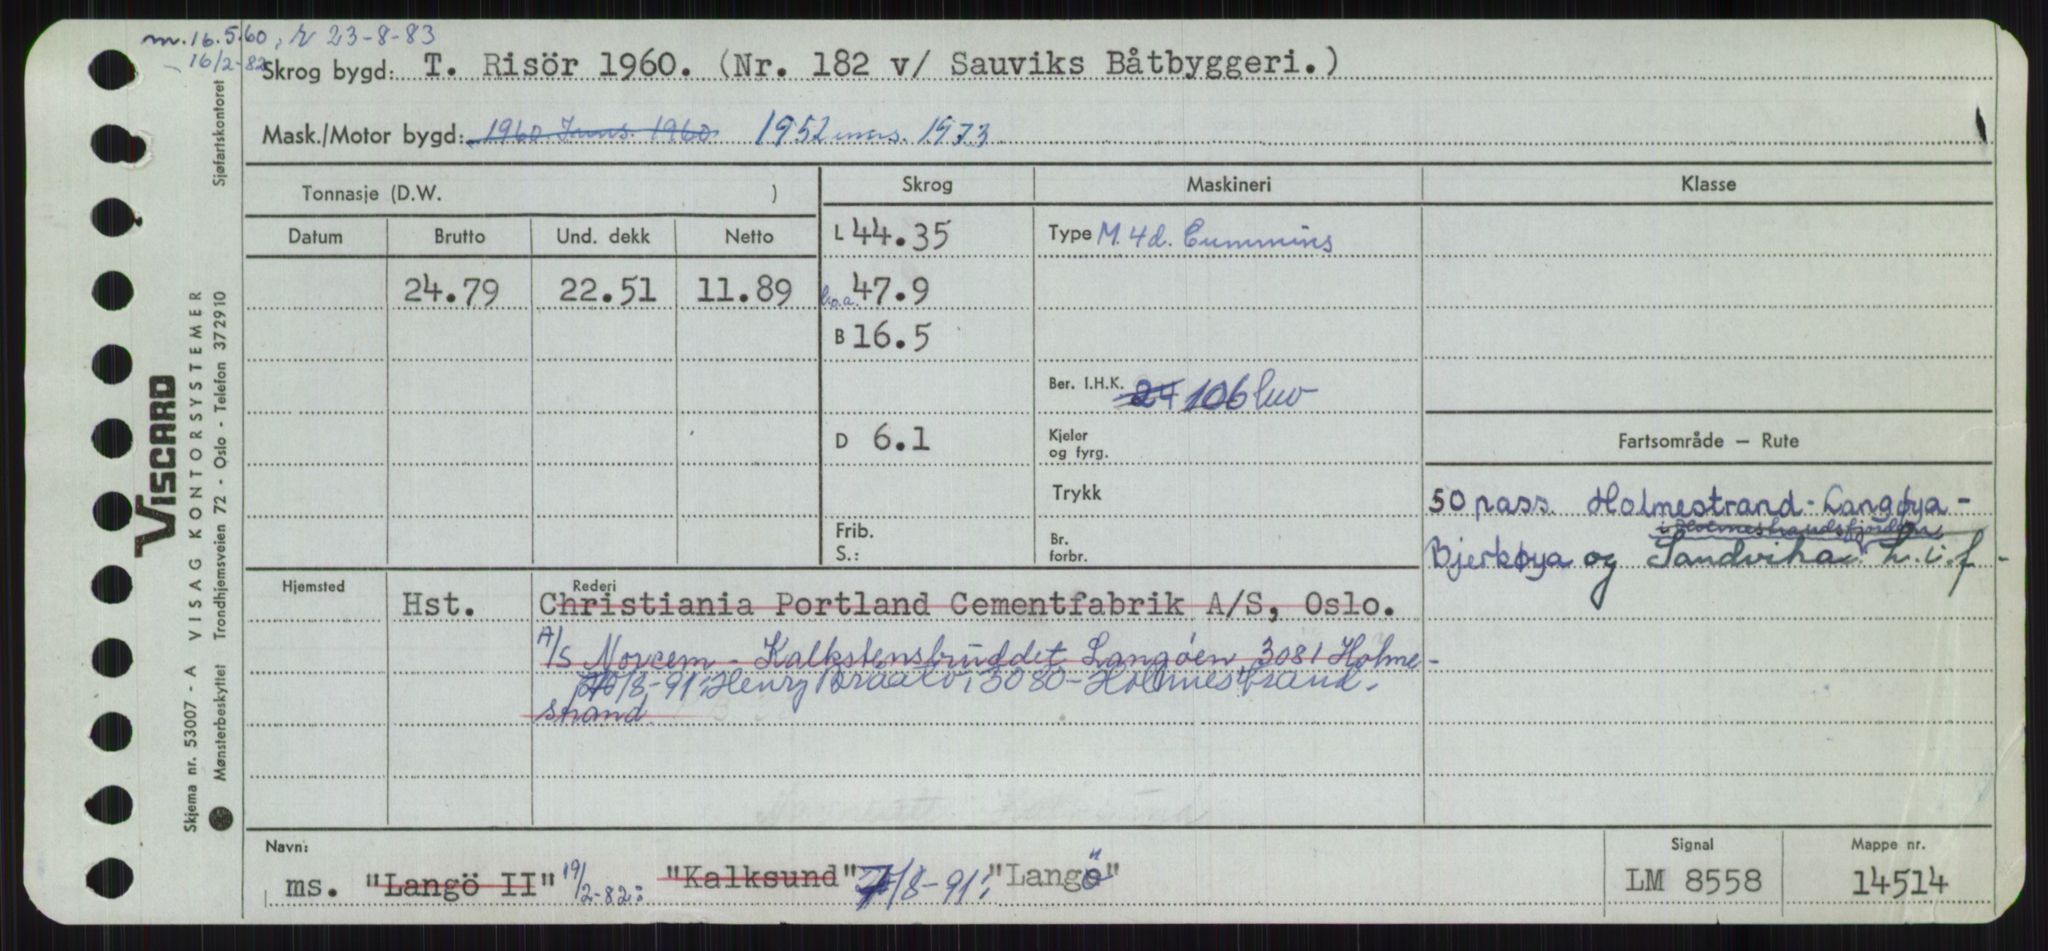 m. 16.5.60, r 23-8-83
16/2-82
Skrog bygd: T. Risör 1960. (Nr. 182 v/ Sauviks Båtbyggeri.)
Mask./Motor bygd: 1960. Inns. 1960 1952 inns. 1973
Tonnasje (D.W. )
Skrog
Maskineri
Klasse
Datum
Brutto
Und. dekk
Netto
24.79
22.51
11.89
L 44.35
l.o.a. 47.9
B 16.5
D 6.1
Frib.
S.:
Type M. 4 d. Cummins
Ber. I.H.K. 24 106
Kjeler
og fyrg.
Trykk
Br.
forbr.
Fartsområde — Rute
50 pass. Holmestrand - Langøya -
i Holmestrandsfjorden
Bjerkøya og Sandvika L.i.f -
Hjemsted
Hst.
Rederi
Christiania Portland Cementfabrik A/S, Oslo.
A/S Norcem - Kalkstensbruddet Langöen, 3081 Holme-
/8-91: Henry 3080 - Holmestrand.
strand
Navn:
ms. "Langö II" 19/2-82: "Kalksund" /8-91: "Langö"
Signal
LM 8558
Mappe nr.
14514
VISCARD
VISAG KONTORSYSTEMER
Sjøfartskontoret
Skjema nr. 53007 - A
Mønsterbeskyttet Trondhjemsveien 72 - Oslo - Telefon 372910